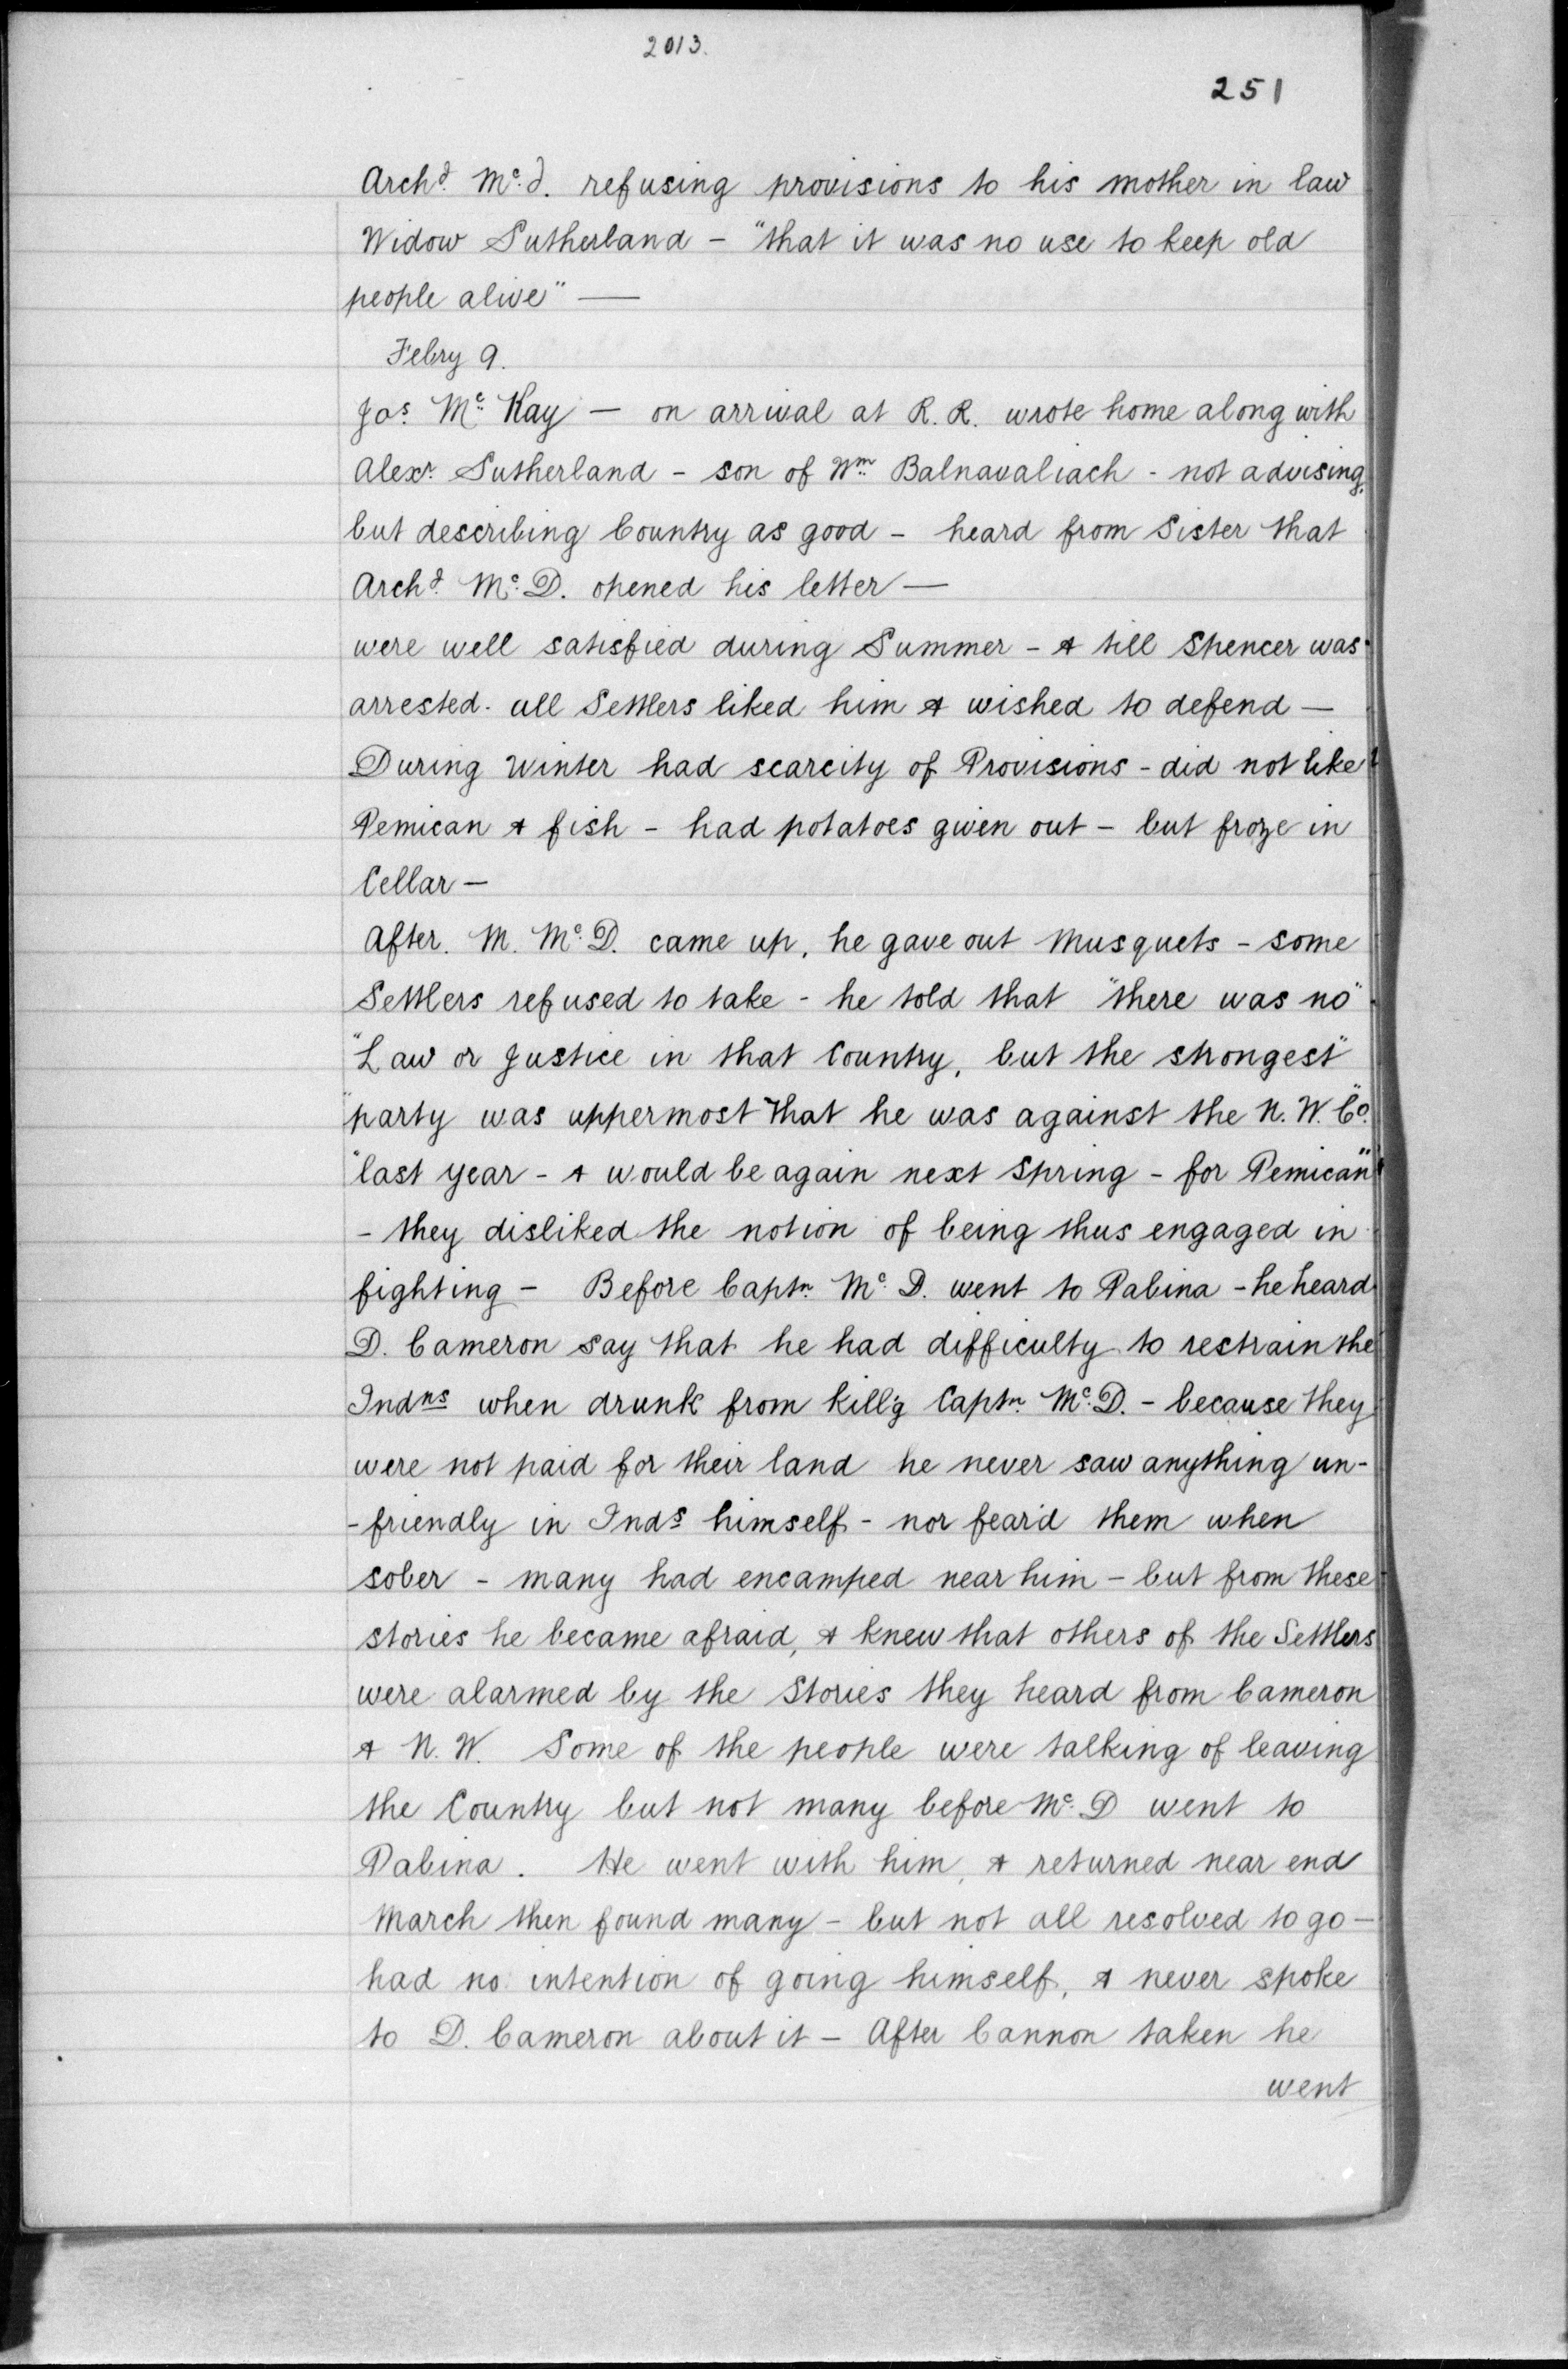 2013.
251
Archd. Mc. d. refusing provisions to his mother in law
Widow Sutherland - "that it was no use to keep old
people alive" —
Febry 9.
Jas. Mc. Kay — on arrival at R. R. wrote home along with
Alexr. Sutherland - son of Wm. Balnavaliach - not advising,
but describing Country as good - heard from Sister that
Archd. Mc. D. opened his letter —
were well satisfied during Summer - & till Spencer was
arrested. all Settlers liked him & wished to defend —
During Winter had scarcity of Provisions - did not like
Pemican & fish - had potatoes given out - but froze in
Cellar —
After. M. Mc. D. came up, he gave out Musquets - some
Settlers refused to take - he told that "there was no"
"Law or Justice in that Country, but the strongest"
"party was uppermost that he was against the N. W. Co."
"last year - & would be again next Spring - for Pemican"
- they disliked the notion of being thus engaged in
fighting - Before Captn. Mc. D. went to Pabina - he heard
D. Cameron say that he had difficulty to restrain the
Indns when drunk from kill'g Captn. Mc. D. - because they
were not paid for their land he never saw anything un-
-friendly in Inds himself - nor fear'd them when
sober - many had encamped near him - but from these
stories he became afraid, & knew that others of the Settlers
were alarmed by the Stories they heard from Cameron
& N. W. Some of the people were talking of leaving
the Country but not many before Mc. D went to
Pabina. He went with him, & returned near end
March then found many - but not all resolved to go -
had no intention of going himself, & never spoke
to D. Cameron about it - After Cannon taken he
went